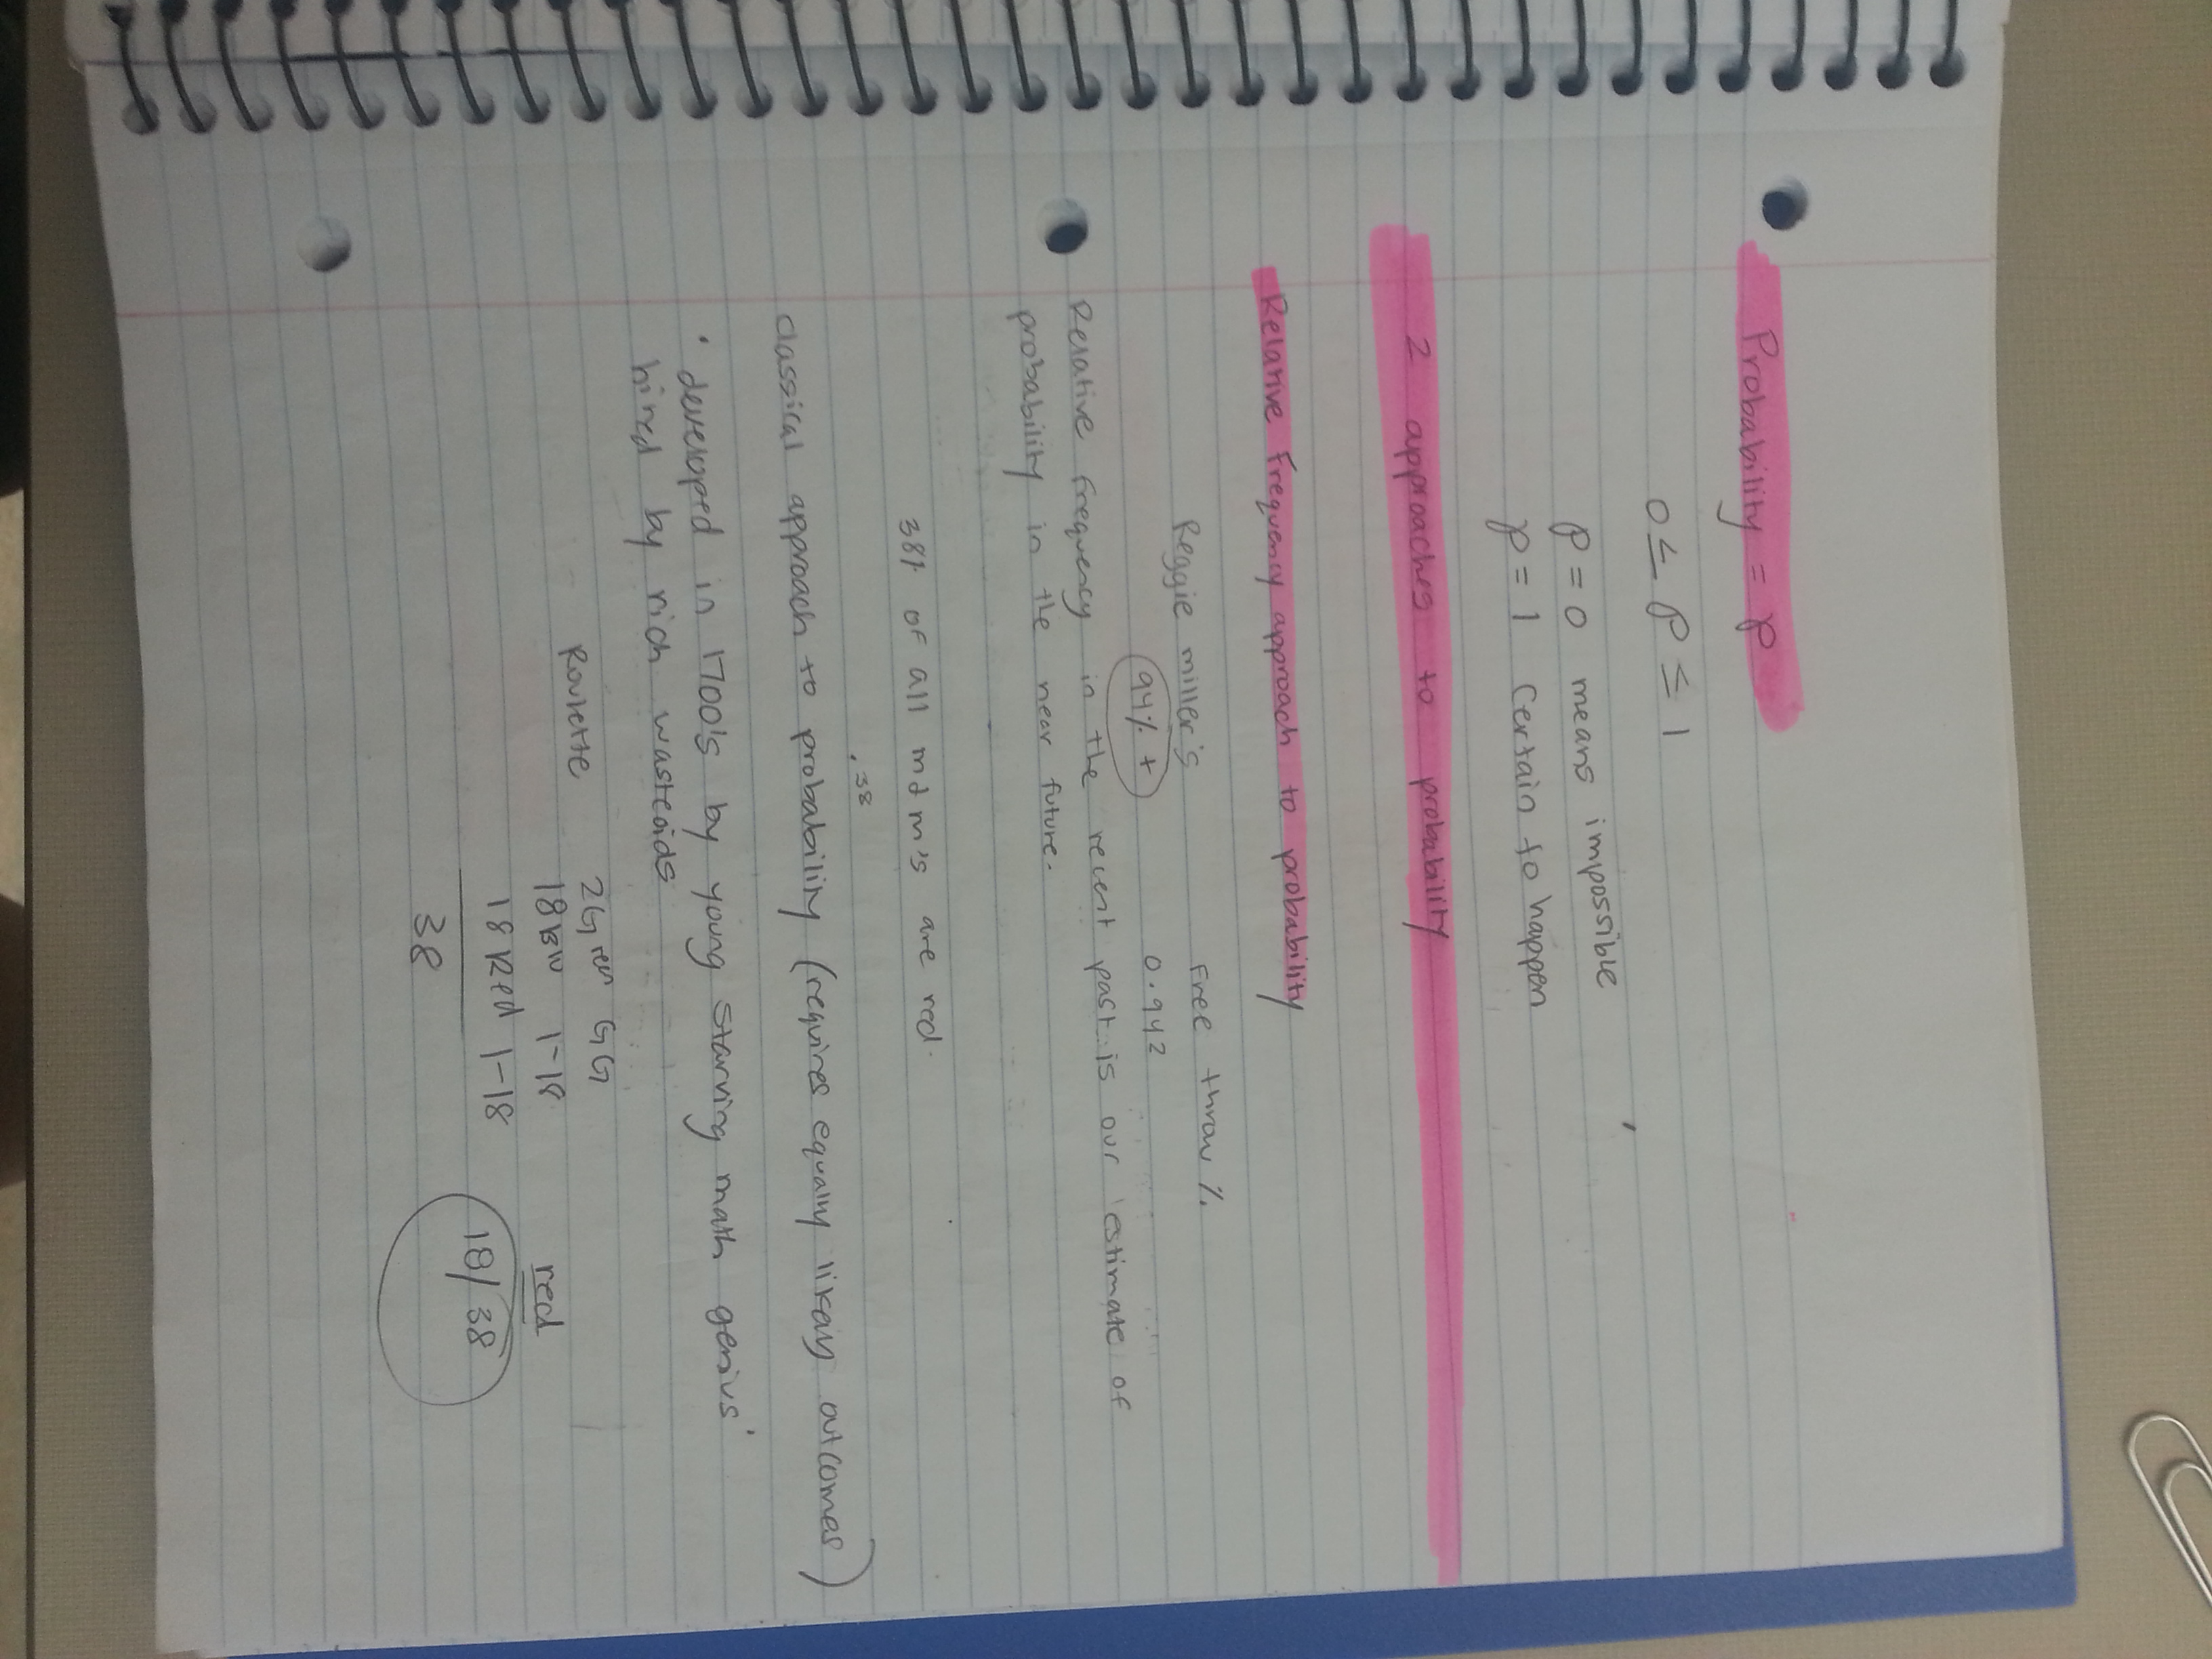 Probability = p
0 ≤ p ≤ 1
p = 0 means impossible
p = 1 Certain to happen
2 approaches to probability
Relative Frequency approach to probability
Reggie miller's Free throw %
94% + 0.942
Relative frequency in the recent past is our estimate of
probability in the near future.
38% of all m&m's are red.
.38
Classical approach to probability (requires equally likely outcomes)
• developed in 1700's by young starving math genius'
hired by rich wasteoids
Roulette 2Green GG
18BW 1-18 red
18 Red 1-18 18/38
38